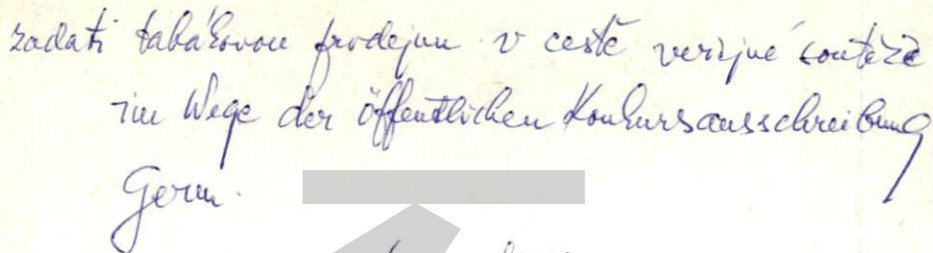 zadati tabákovou prodejnu v cestě veřejné soutěže
im Wege der öffentlichen Konkursausschreibung
Germ.